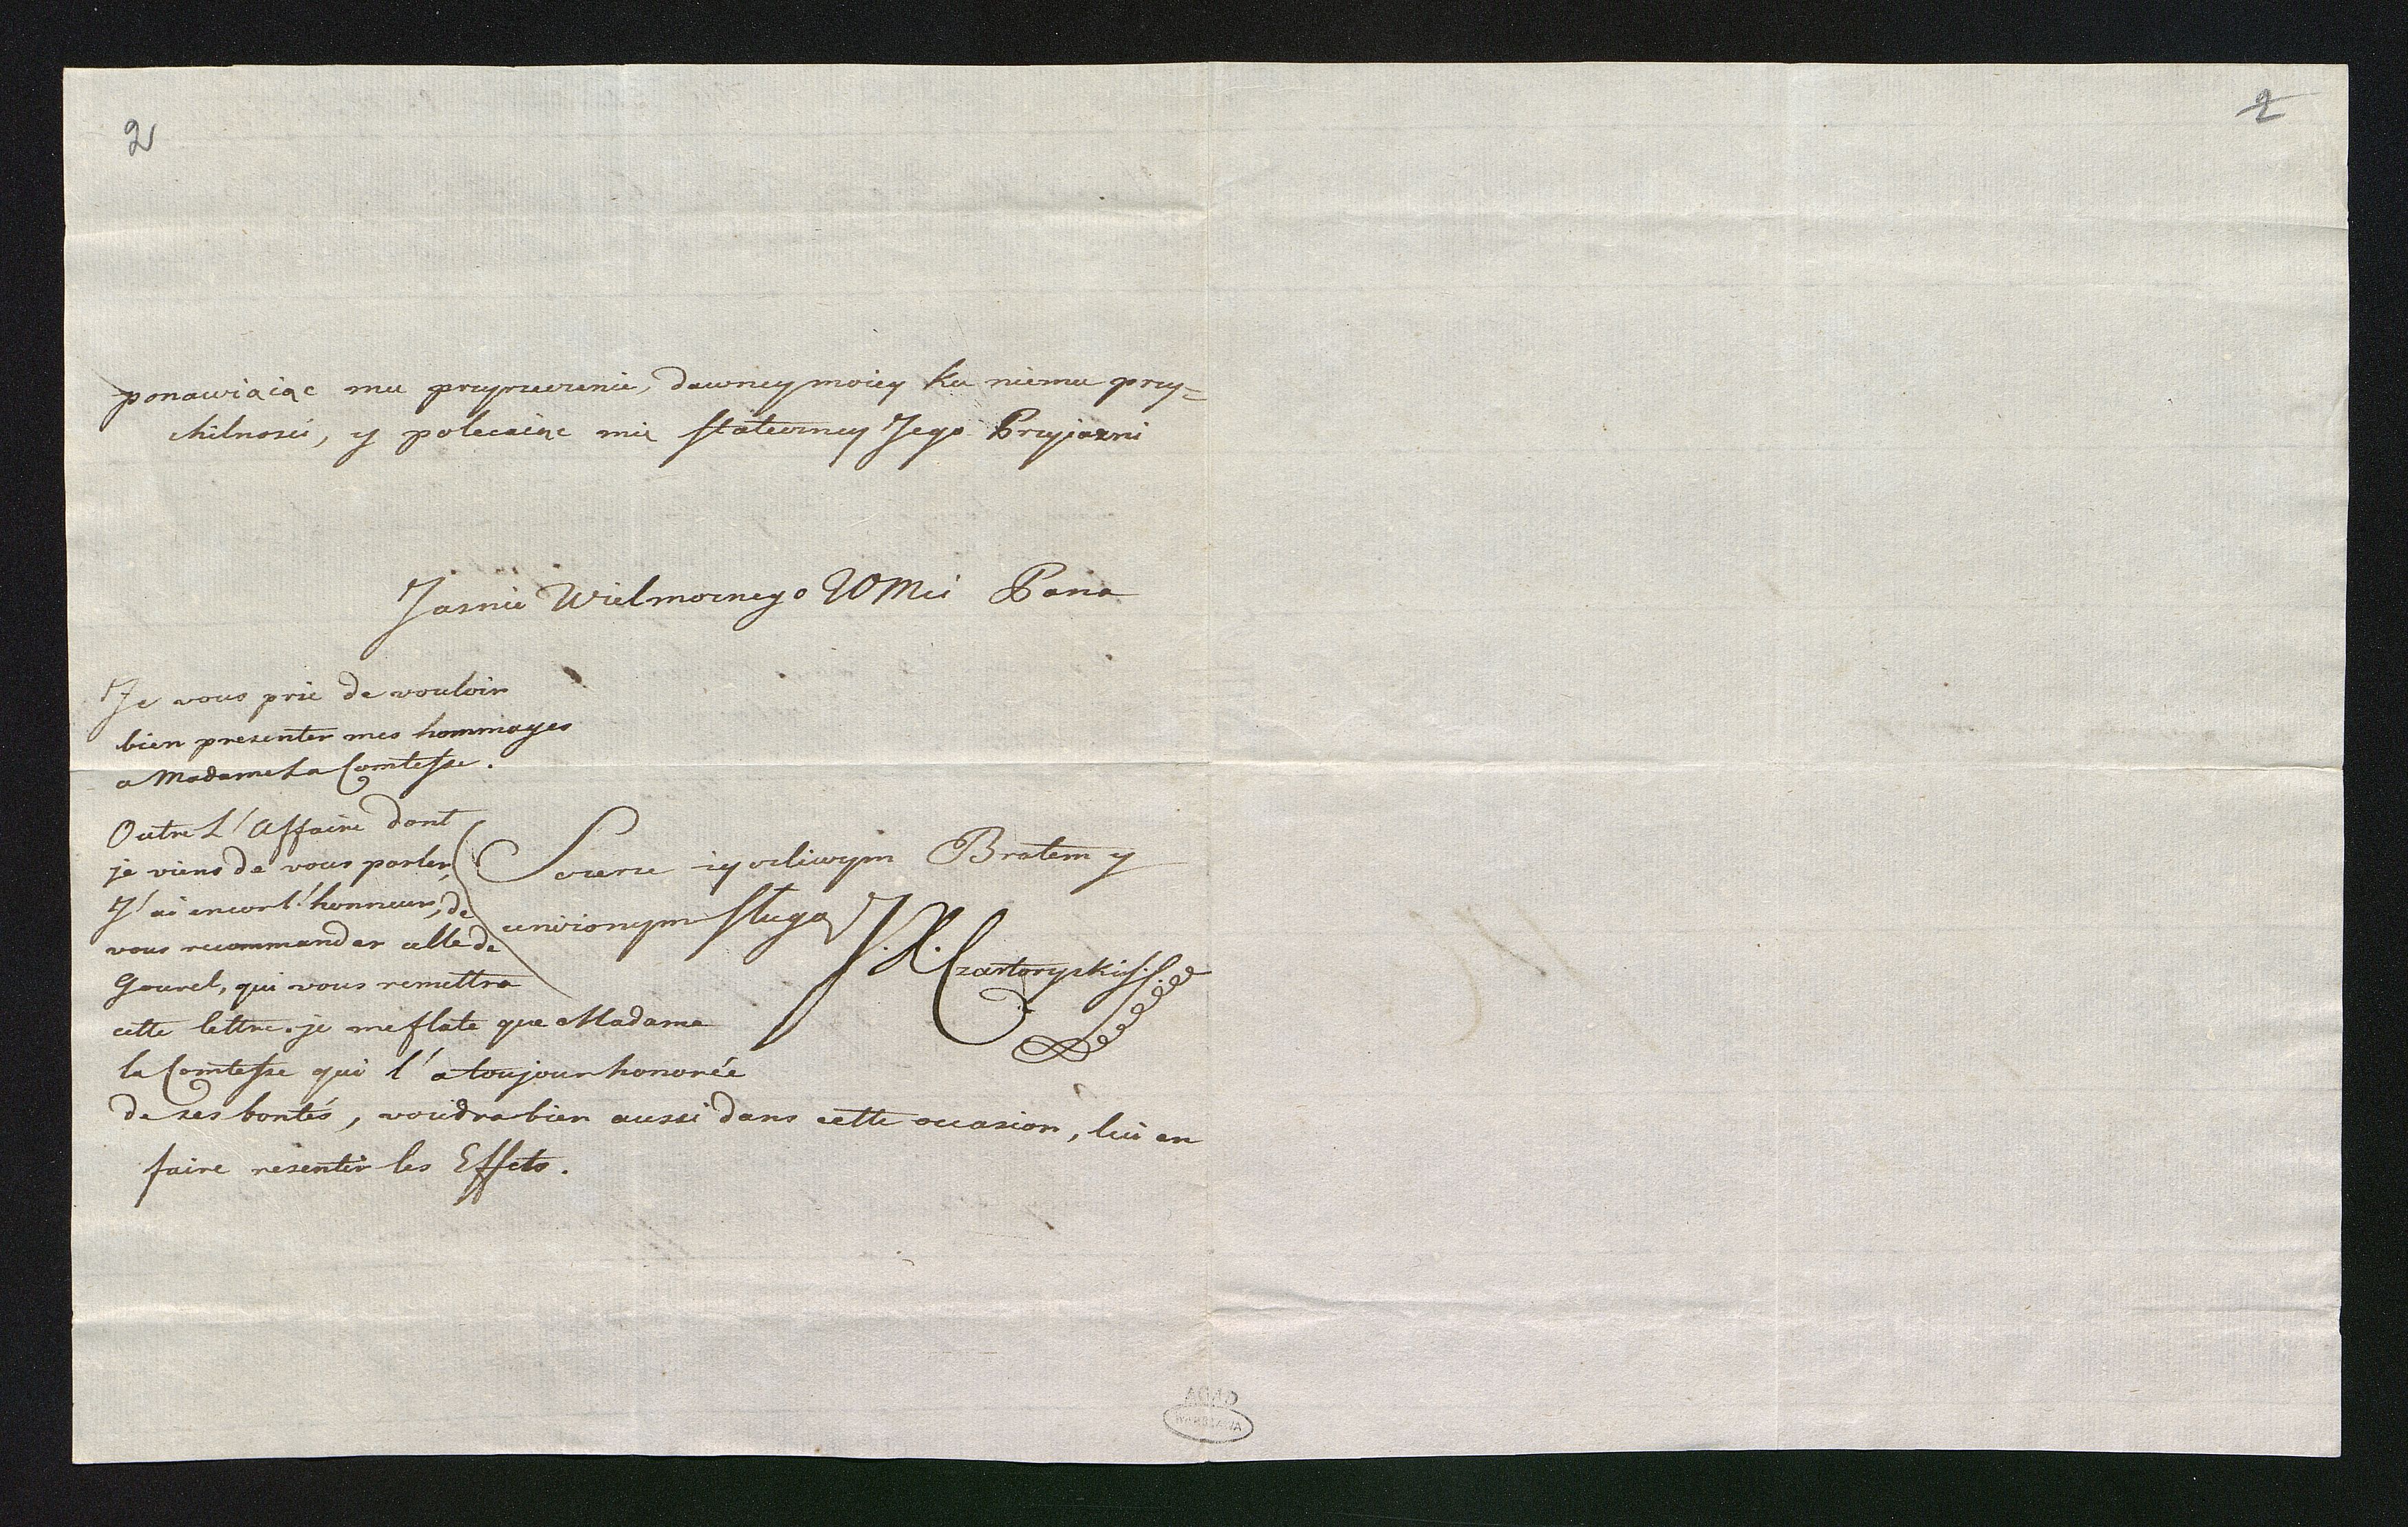 2
2
ponawiaiąc mu przyrzeczenie, dawney moiey ku niemu przy=
chilnosci, y polecaiąc mię stateczney Jego Przyjazni
Jasnie Wielmoznego WMci Pana
Je vous prie de vouloir
bien presenter mes hommages
a Madame La Comtesse.
Outre L'Affaire dont
je viens de vous parler,
J'ai encor l'honneur, de
vous recommander celle de
Gourel, qui vous remettra
cette lettre. je me flate que Madame
la Comtesse qui l'a toujour honorée
de ses bontés, voudra bien aussi dans cette occasion, lui en
faire resentir les Effets.
Szczerze zyczliwym Bratem y
unizonym sługą
Czartoryski
AGAD
WARSZAWA